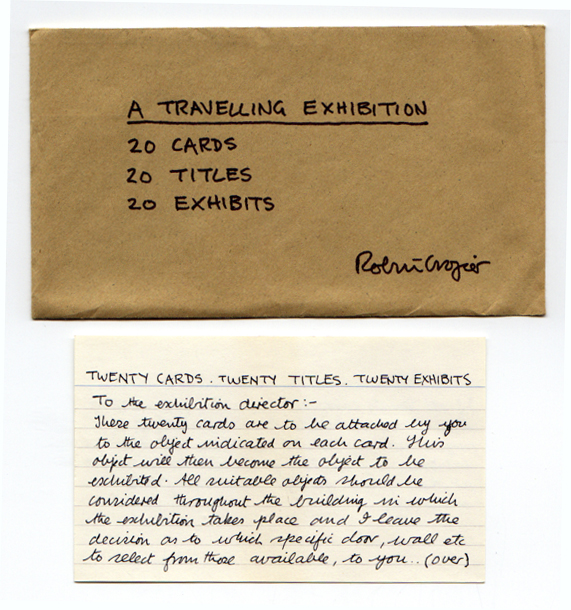 A TRAVELLING EXHIBITION
20 CARDS
20 TITLES
20 EXHIBITS
Robin Crozier
TWENTY CARDS. TWENTY TITLES. TWENTY EXHIBITS
To the exhibition director:-
These twenty cards are to be attached by you
to the object indicated on each card. This
object will then become the object to be
exhibited. All suitable objects should be
considered throughout the building in which
the exhibition takes place and I leave the
decision as to which specific door, wall etc
to select from those available, to you.. (over)